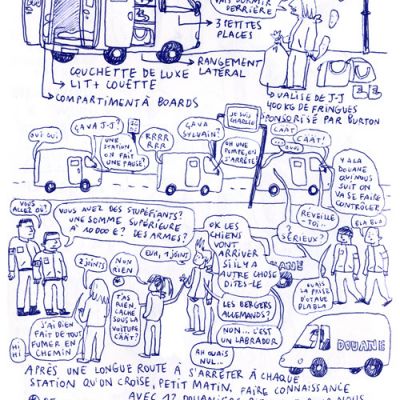 VAIS DORMIR
DERRIÈRE
3 PETITES
PLACES
RANGEMENT
LATÉRAL
COUCHETTE DE LUXE
LIT + COUETTE
COMPARTIMENT À BOARDS
VALISE DE J-J
400 KG DE FRINGUES
SPONSORISÉ PAR BURTON
OUI OUI
ÇA VA J-J ?
UNE
STATION,
ON FAIT
UNE PAUSE ?
RRRR
RRR
ÇA VA
SYLVAIN ?
JE SUIS
CHARLIE
OH UNE
POMPE, ON
S'ARRÊTE !
CÂÂT
OUAI
CÂÂT !
Y A LA
DOUANE
QUI NOUS
SUIT ON
VA SE FAIRE
CONTRÔLER
VOUS
ALLEZ OÙ ?
VOUS AVEZ DES STUPÉFIANTS ?
UNE SOMME SUPÉRIEURE
À 10000 € ? DES ARMES ?
2 JOINTS
NON
RIEN
EUH, 1 JOINT
T'AS
RIEN
CACHÉ
SOUS LA
VOITURE
CÂÂT ?
OK LES
CHIENS
VONT
ARRIVER
S'IL Y A
AUTRE CHOSE
DITES-LE
LES BERGERS
ALLEMANDS ?
NON... C'EST
UN LABRADOR
AH OUAIS
NUL..
RÉVEILLE
TOI..
? SÉRIEUX ?
ELA ELA
DOUANE
J'AI BIEN
FAIT DE TOUT
FUMER EN
CHEMIN
HI
HI
APRÈS UNE LONGUE ROUTE À S'ARRÊTER À CHAQUE
STATION QU'ON CROISE, PETIT MATIN. FAIRE CONNAISSANCE
AVEC 12 DOUANIERS